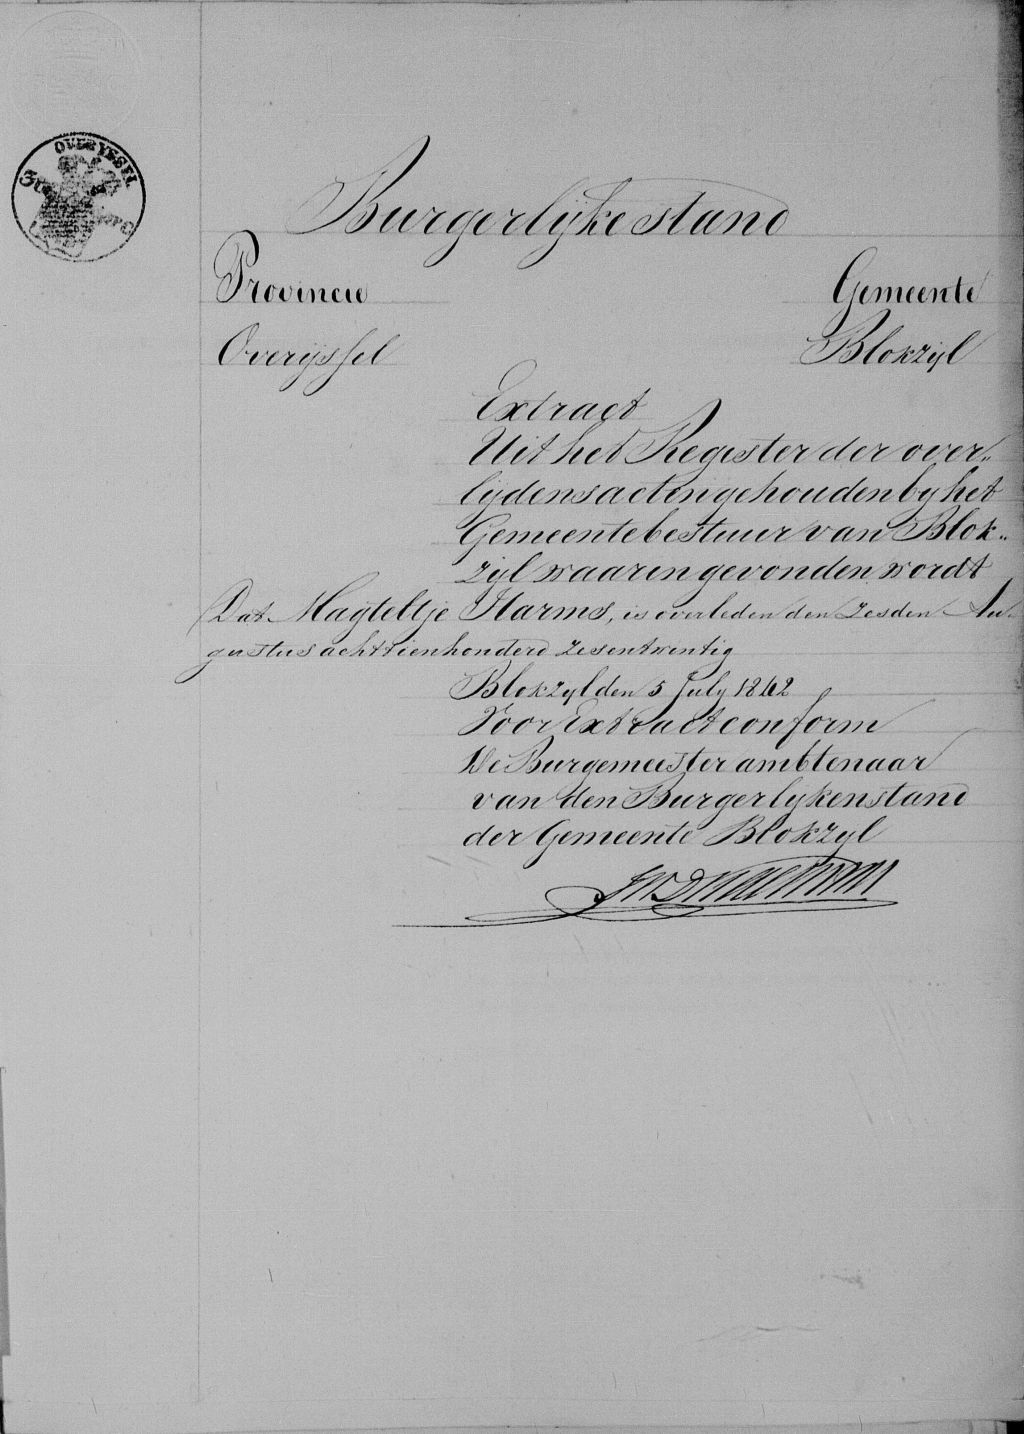 OVERYSSEL
Burgerlijke stand
Provincie Gemeente
Overijssel Blokzijl
Extract
Uit het Register der over„
lijdensacten gehouden by het
Gemeentebestuur van Blok„
zijl waarin gevonden wordt
Dat Magteltje Harms, is overleden den zesden Au„
gustus achttienhonderd zesentwintig
Blokzyl den 5 July 1842
Voor Extract conform
De Burgemeester ambtenaar
van den Burgerlykenstand
der Gemeente Blokzyl